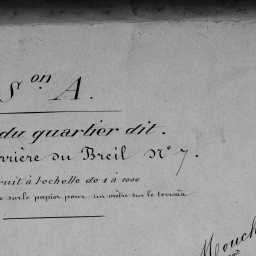 Son A.
du quartier dit.
rrière du Breil No 7.
ruit à l'echelle de 1 à 1000
sur le papier pour un mètre sur le terrain
Mouch